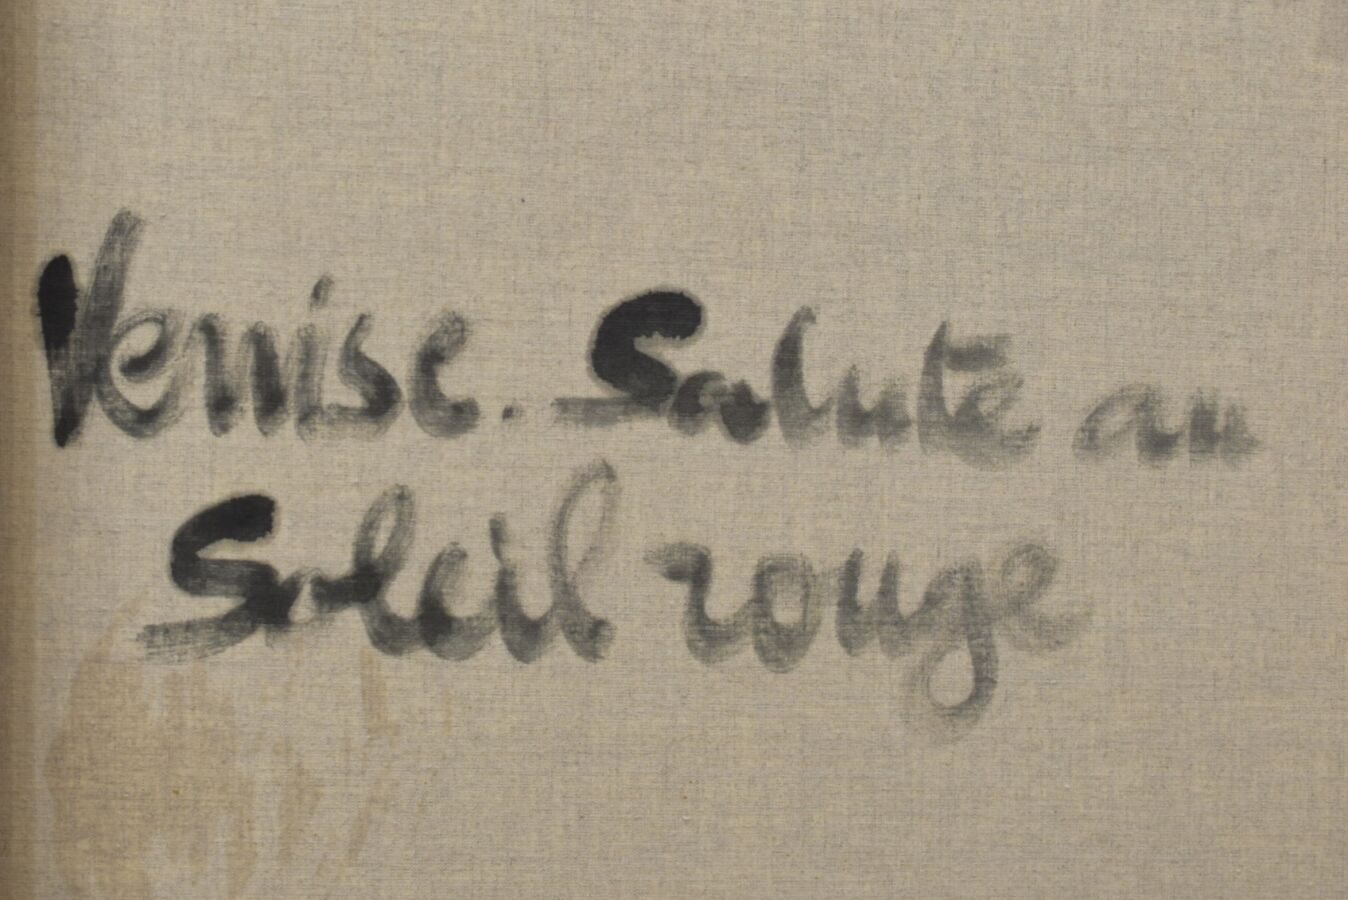 Venise. Salute au
Soleil rouge